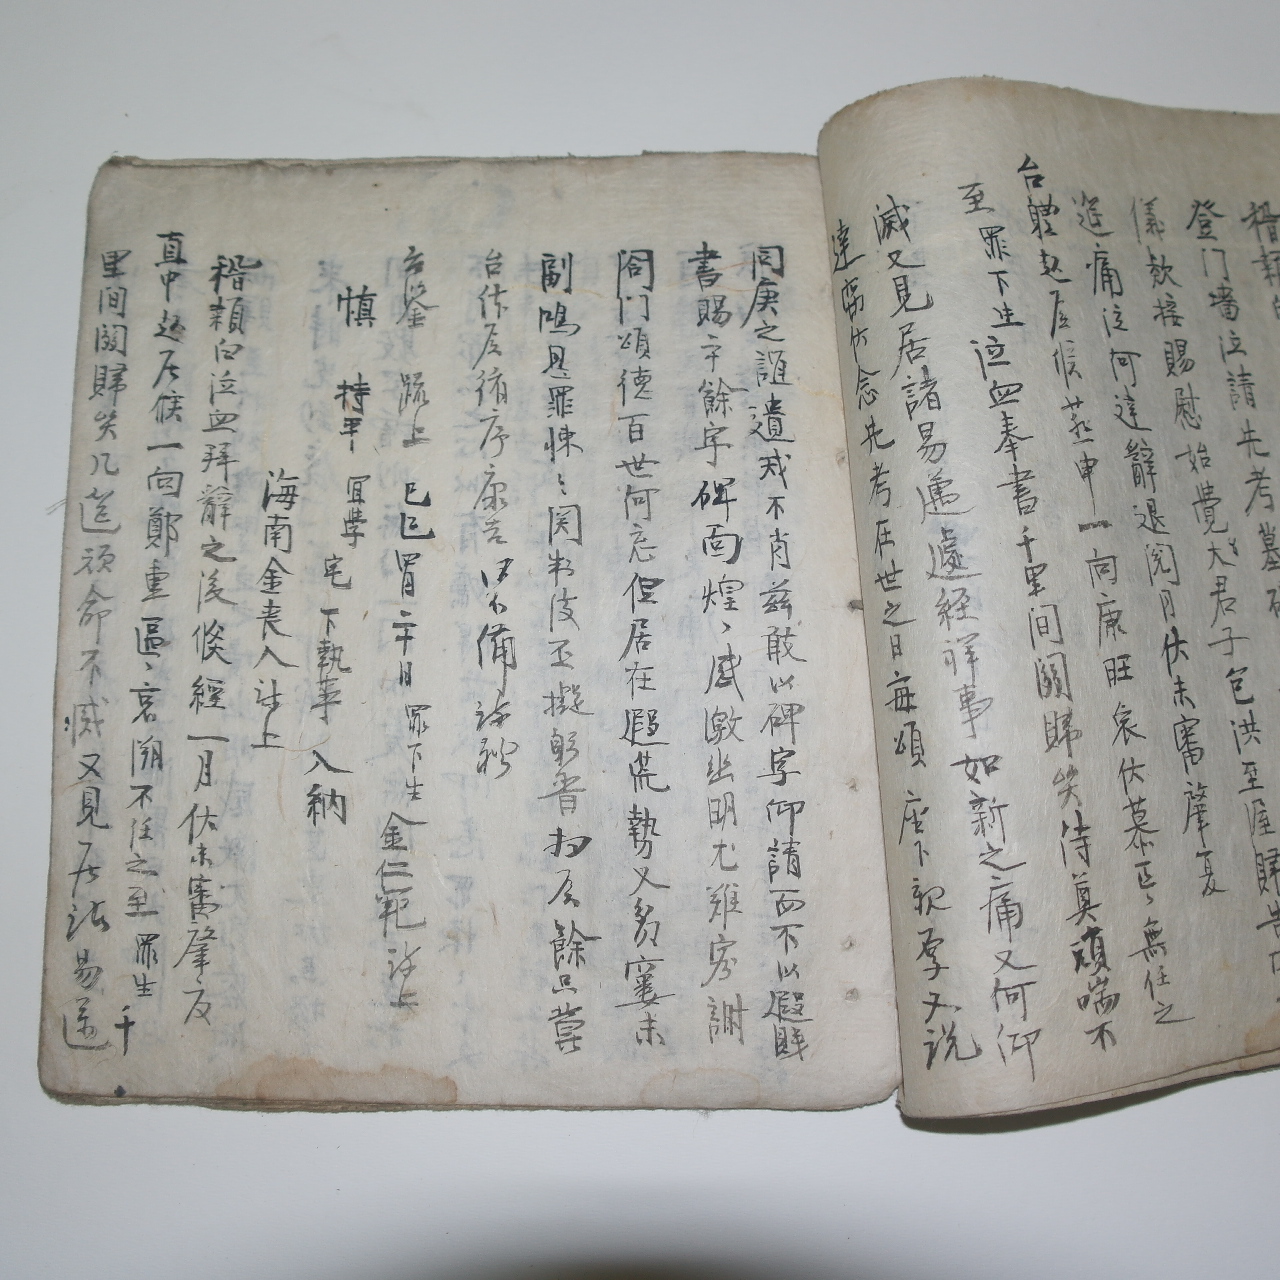 稽顙白
登门嗇泣請先考墓石
儀欵接賜慰始覺大君子包洪至渥歸告
進痛泣何達辭退閱月伏未審肇夏
台體起居候萬申一向康旺哀伏慕區〻無任之
至罪下生泣血奉書千里间關歸矣侍奠頑喘不
滅又見居諸易遷遽經祥事如新之痛又何仰
達窩伏念先考在世之日每頌 座下親厚又説
同庚之誼遺戒不肖玆敢以碑字仰請而不以遐賤
書賜二千餘字碑面煌〻感激幽明尤難容謝
闔门頌德百世何忘但居在遐荒勢又窮窶未
副鳴恩罪悚〻
台体居循序康吉 不備疏
台鑒 疏上 己巳 月二十日 罪下生金仁範疏上
愼 持平 冝學 宅 下執事 入納
海南金喪人疏上
稽顙白泣血拜辭之後倏經一月伏未審肇夏
直中起居候一向鄭重區〻哀溯不任之至罪生 千
里间關歸矣几筵頑命不滅又見居諸易遷